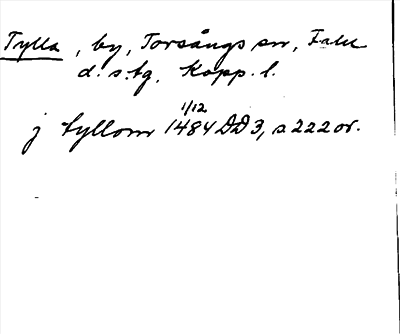 Tylla, by, Torsångs sn, Falu
d. s:tg, Kopp. l.
1/12
j tyllom 1484 DD 3, s 222 or.